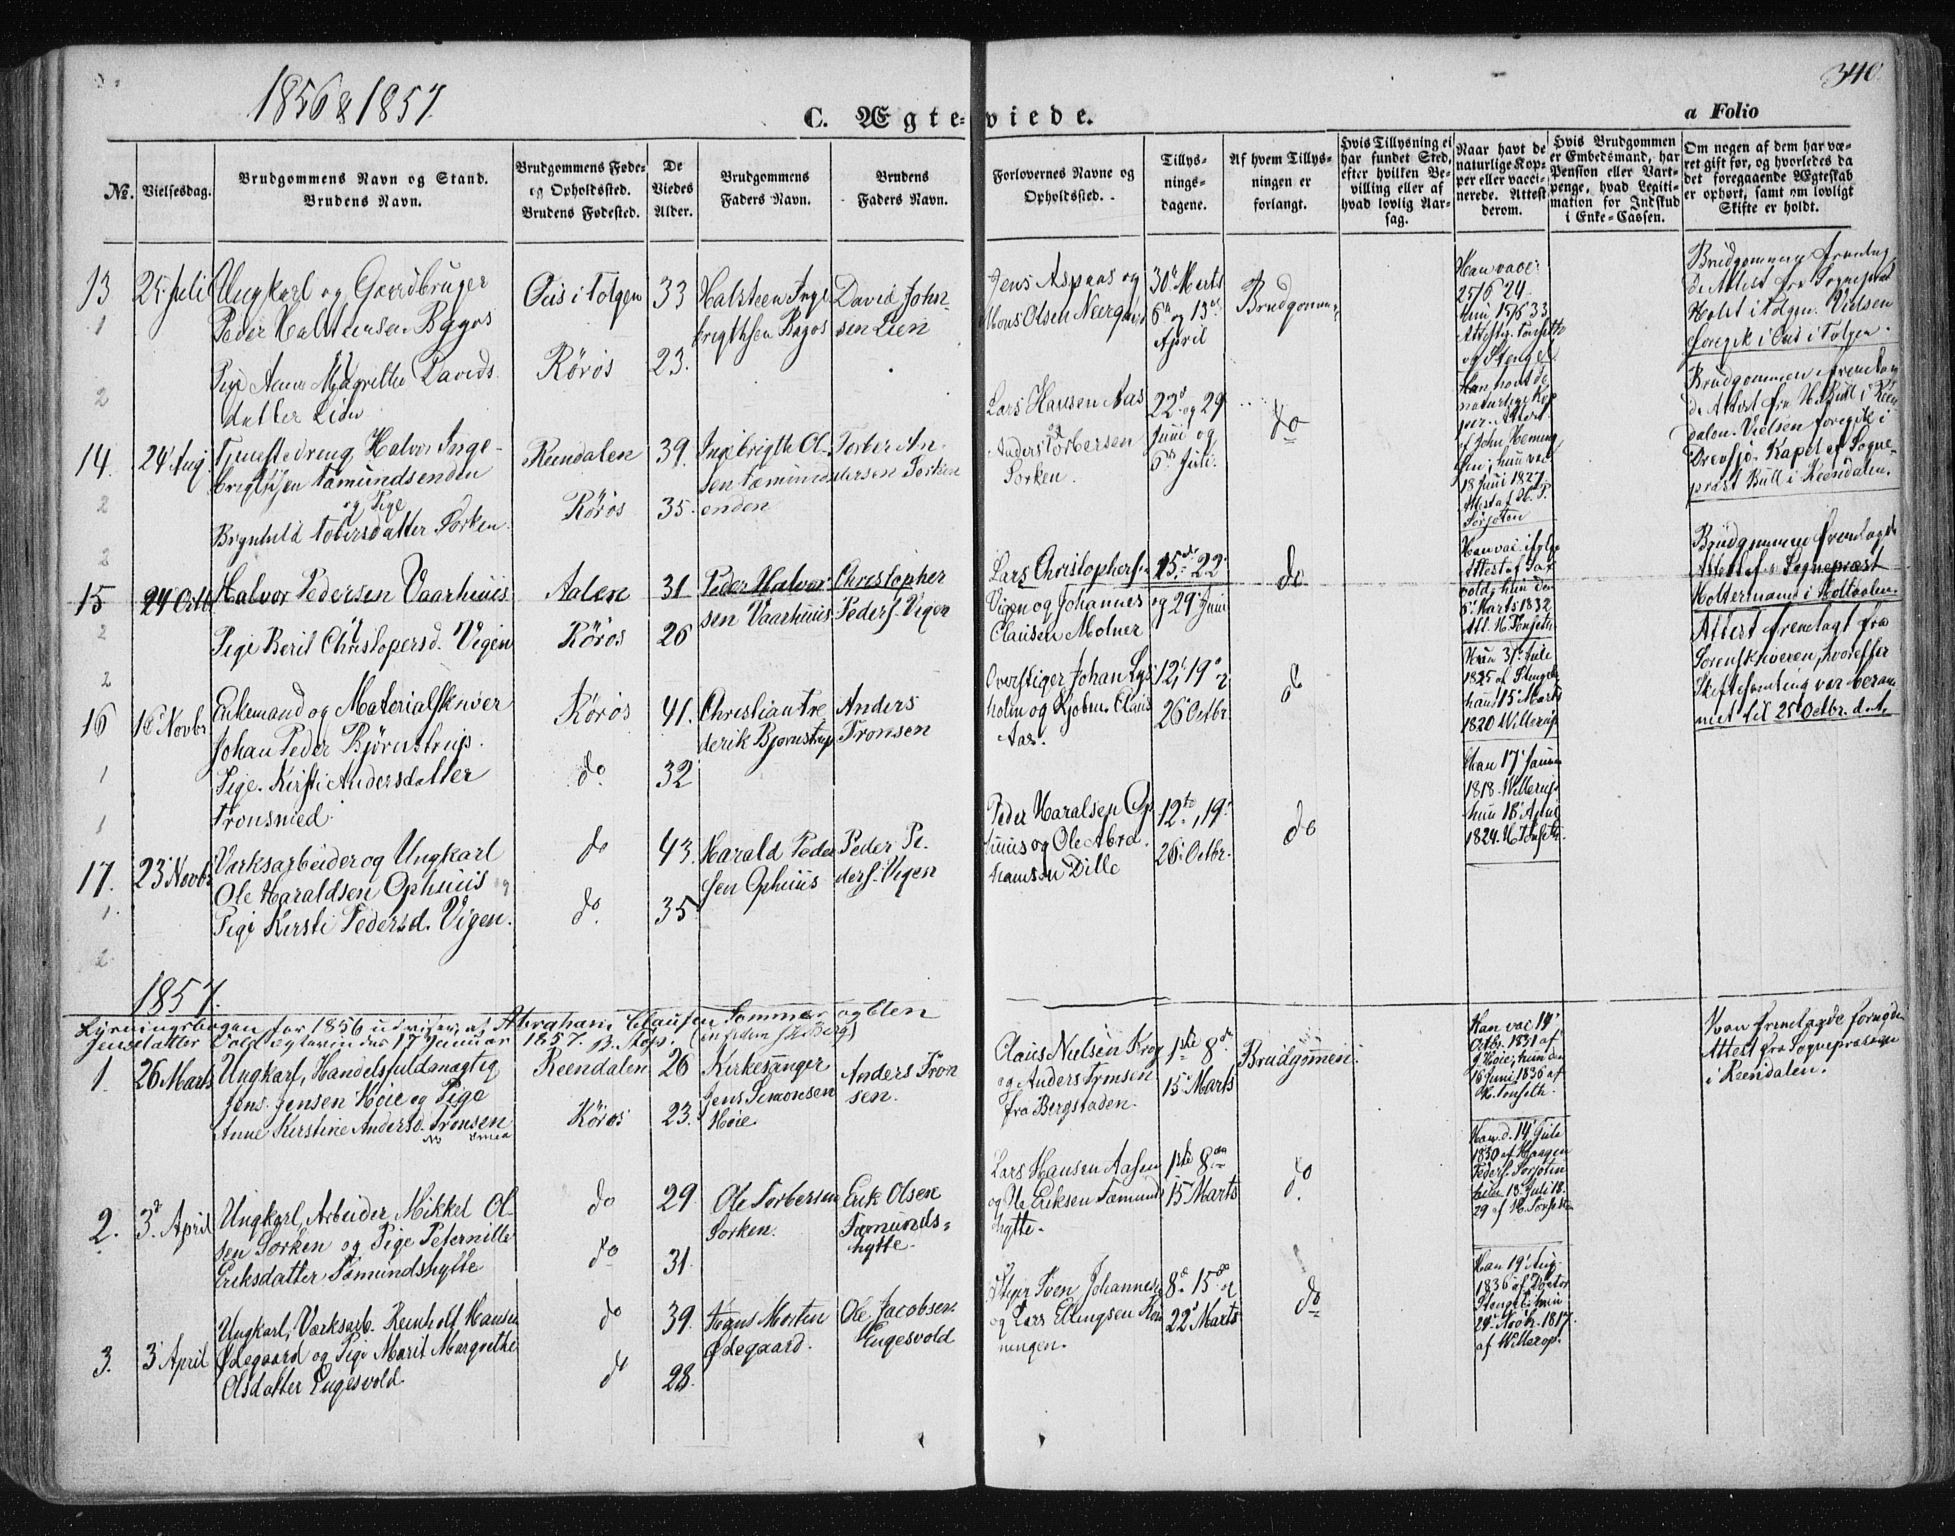 1856 & 1857.
340.
C. Ægte-viede.
a Folio
No.
Vielsesdag.
Brudgommens Navn og Stand.
Brudens Navn.
Brudgommens Føde-
og Opholdssted.
Brudens Fødested.
De
Viedes
Alder.
Brudgommens
Faders Navn.
Brudens
Faders Navn.
Forlovernes Navne og
Opholdssted.
Tillys-
nings-
dagene.
Af hvem Tillys-
ningen er
forlangt.
Hvis Tillysning ei
har fundet Sted,
efter hvilken Be-
villing eller af
hvad lovlig Aar-
sag.
Naar havt de
naturlige Kop-
per eller vacci-
nerede. Attest
derom.
Hvis Brudgommen
er Embedsmand, har
Pension eller Vart-
penge, hvad Legiti-
mation for Indskud
i Enke-Cassen.
Om nogen af dem har væ-
ret gift før, og hvorledes da
det foregaaende Ægteskab
er ophørt, samt om lovligt
Skifte er holdt.
13
25 Juli
Ungkarl og Gaardbruger
Peder Halsteensen Bggos
Pige Anne Margrethe Davids
datter Lien
Øus i Tolgen
Røros
33
23.
Halsteen Inge
brigtsen Bggos
David John-
sen Lien
Jens Aspaas og
Mons Olsen Neergaard
30d Marts
6te og 13de
April
Brudgommen
Han vac.
25/6 24
hun 15/6 33
Attester Tonseth
og Stengel
Brudgommen fremlag
de Attest fra Sognepræst
Holst i Tolgen. Vielsen
foregik i Øus i Tolgen.
14.
24 Aug
Tjenestedreng Halvor Inge-
brigtsen Fæmundsenden
og Pige
Brynhild Tobersdatter Sorken.
Reendalen
Røros
39.
35.
Ingebrigt Ol-
sen Fæmunds
enden
Torber An-
dersen Sorken
Lars Hansen Aas
og
Anders Torbersen
Sorken.
22d og 29
Juni og
6te Juli.
do
Han havt de
naturlige Kop
per. Attest
af John Heming
sen; hun vac.
18 Juni 1827
Attest af H. P.
Sorjoten
Brudgommen fremlag
de Attest fra H. Bull i Reen
dalen. Vielsen foregik i
Drevsjø Kapel af Sogne-
præst Bull i Reendalen.
15
24 Octb.
Halvor Pedersen Vaarhuus
Pige Berit Christopersd. Vigen
Aalen
Røros
31
26
Peder Halvor
sen Vaarhuus
Christopher
Peders. Vigen
Lars Christophers.
Vigen og Johannes
Clausen Molner
15de 22
og 29 Juni
do
6 Marts 1832
Att. H. Tonseth
Brudgommen fremlagde
Attest af Sognepræst
Holtermann i Holtaalen.
16
16 Novbr.
Enkemand og Materialskriver
Johan Peder Bjørnstrup.
Pige Kirsti Andersdatter
Tronsmed.
Røros
do
41.
32
Christian Fre
derik Bjørnstrup
Anders
Tronsen
Overstiger Johan Lys
holm og Kjøbm. Claus
Aas.
12, 19 &
26 Octbr.
do
Han 31 Juli
1825 af Stengel
hun 15 Marts
1820 Willerup
Attest fremlagt fra
Sorenskriveren, hvorefter
Skiftesamling var beram
met til 25 Octbr. d. A.
17.
23 Novb.
Værksarbeider og Ungkarl
Ole Haraldsen Ophuus og
Pige Kirsti Pedersd. Vigen.
do
do.
43.
35
Harald Peder
sen Ophuus
Peder Pe-
ders. Vigen
Peder Haralsen Op
huus og Ole Abra
hamsen Dille
12te, 19
26 Octbr.
do
Han 17 Januar
1818. Willerup
hun 18 April
1824. H. Tonseth.
1857.
Lysningsbogen for 1856 udviser, at Abraham Clausen Sommer og Elen
Jensdatter Vold egtevi​edes 17 Januar 1857.
1
26 Marts
Ungkarl, Handelsfuldmægtig
Jens Jensen Høie og Pige
Anne Kirstine Andersd. Tronsen
Reendalen
Røros
26
23.
Kirkesanger
Jens Simonsen
Høie
Anders Tron
sen.
Claus Nielsen Krog
og Anders Tronsen
fra Bergstaden.
1ste 8de
15 Marts
Brudgommen
Han vac 14
Octbr. 1831 af
J. Høie; hun den
16 Juni 1836 af
H. Tonseth.
Han fremlagde fornøden
Attest fra Sognepræsten
i Reendalen.
2.
3d April
Ungkarl, Arbeider Mikkel Ol-
sen Sorken og Pige Peternille
Eriksdatter Fæmundshytte
do
do
29
31.
Ole Torbersen
Sorken.
Erik Olsen
Fæmunds-
hytte.
Lars Hansen Aasen
og Ole Eriksen Fæmunds
hytte.
1ste 8de
15 Marts
do.
Han d. 14 Juli
1830 af Haagen
Peders. Sorjoten
hun 18 Juli 18
29 af H. Tonseth
3.
3 April
Ungkarl, Værksarb. Reinholt Hansen
Ødegaard og Pige Marit Margrethe
Olsdatter Engesvold
do
do
39.
28.
Hans Morten
Ødegaard.
Ole Jacobsen
Engesvold
Stiger Sven Johannesen
og Lars Ellingsen Røn
ningen.
8de 15de &
22 Marts
do
Han 19 Aug.
1836 af Doctor
Stengel; hun
24 Novb. 1817.
af Willerop.